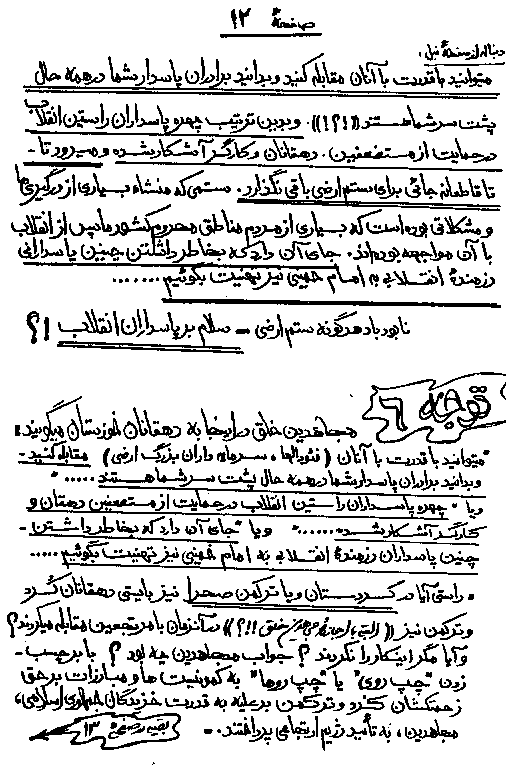 صفحهٔ ۱۲
دنباله از صفحهٔ قبل :
میتوانید با قدرت با آنان مقابله کنید و بدانید برادران پاسدار شما در همه حال
پشت سر شما هستند ((!؟!)). و بدین ترتیب چهره پاسداران راستین انقلاب
در حمایت از مستضعفین. دهقانان و کارگر آشکار شده و میرود تا -
تا قاطعانه جائی برای ستم ارضی باقی نگذارد. ستمی که منشاء بسیاری از درگیری ها
و مشکلاتی بوده است که بسیاری از مردم مناطق محروم کشور ما پس از انقلاب
با آن مواجهه بوده اند. جای آن دارد که بخاطر داشتن چنین پاسدارانی
رزمندهٔ انقلابی به امام خمینی نیز تهنیت بگوئیم .......
نابود باد هرگونه ستم ارضی - سلام بر پاسداران انقلاب !؟
توجه ۶
مجاهدین خلق در اینجا به دهقانان خوزستان میگویند:
"میتوانید با قدرت با آنان (فئودالها، سرمایه داران بزرگ ارضی) مقابله کنید -
و بدانید برادران پاسدار شما در همه حال پشت سر شما هستند ....."
و یا "چهره پاسداران راستین انقلاب در حمایت از مستضعفین دهقان و
کارگر آشکار شده ......" و یا "جای آن دارد که بخاطر داشتن -
چنین پاسداران رزمندهٔ انقلابی به امام خمینی نیز تهنیت بگوئیم .....
. راستی آیا در کردستان و یا ترکمن صحرا نیز بایستی دهقانان کُرد
و ترکمن نیز ((راستی، خلقی !!؟)) در آنزمان با مرتجعین مقابله میکردند؟
و آیا مگر اینکار را نکردند؟ جواب مجاهدین چه بود؟ با برچسب -
زدن "چپ روی" یا "چپ روها" به کمونیست ها و مبارزات برحق
زحمتکشان کُرد و ترکمن بر علیه به قدرت خزیدگان جمهوری اسلامی،
مجاهدین، به تأئید رژیم ارتجاعی پرداختند. -
بقیه در صفحهٔ ۱۳